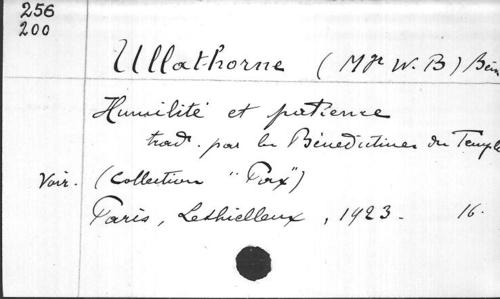 256
200
Ullathorne (Mgr W. B) Bén
Humilité et patience
trad. par les Bénédictines du Temple
Voir. (Collection "Pax")
Paris, Lethielleux, 1923. 16.